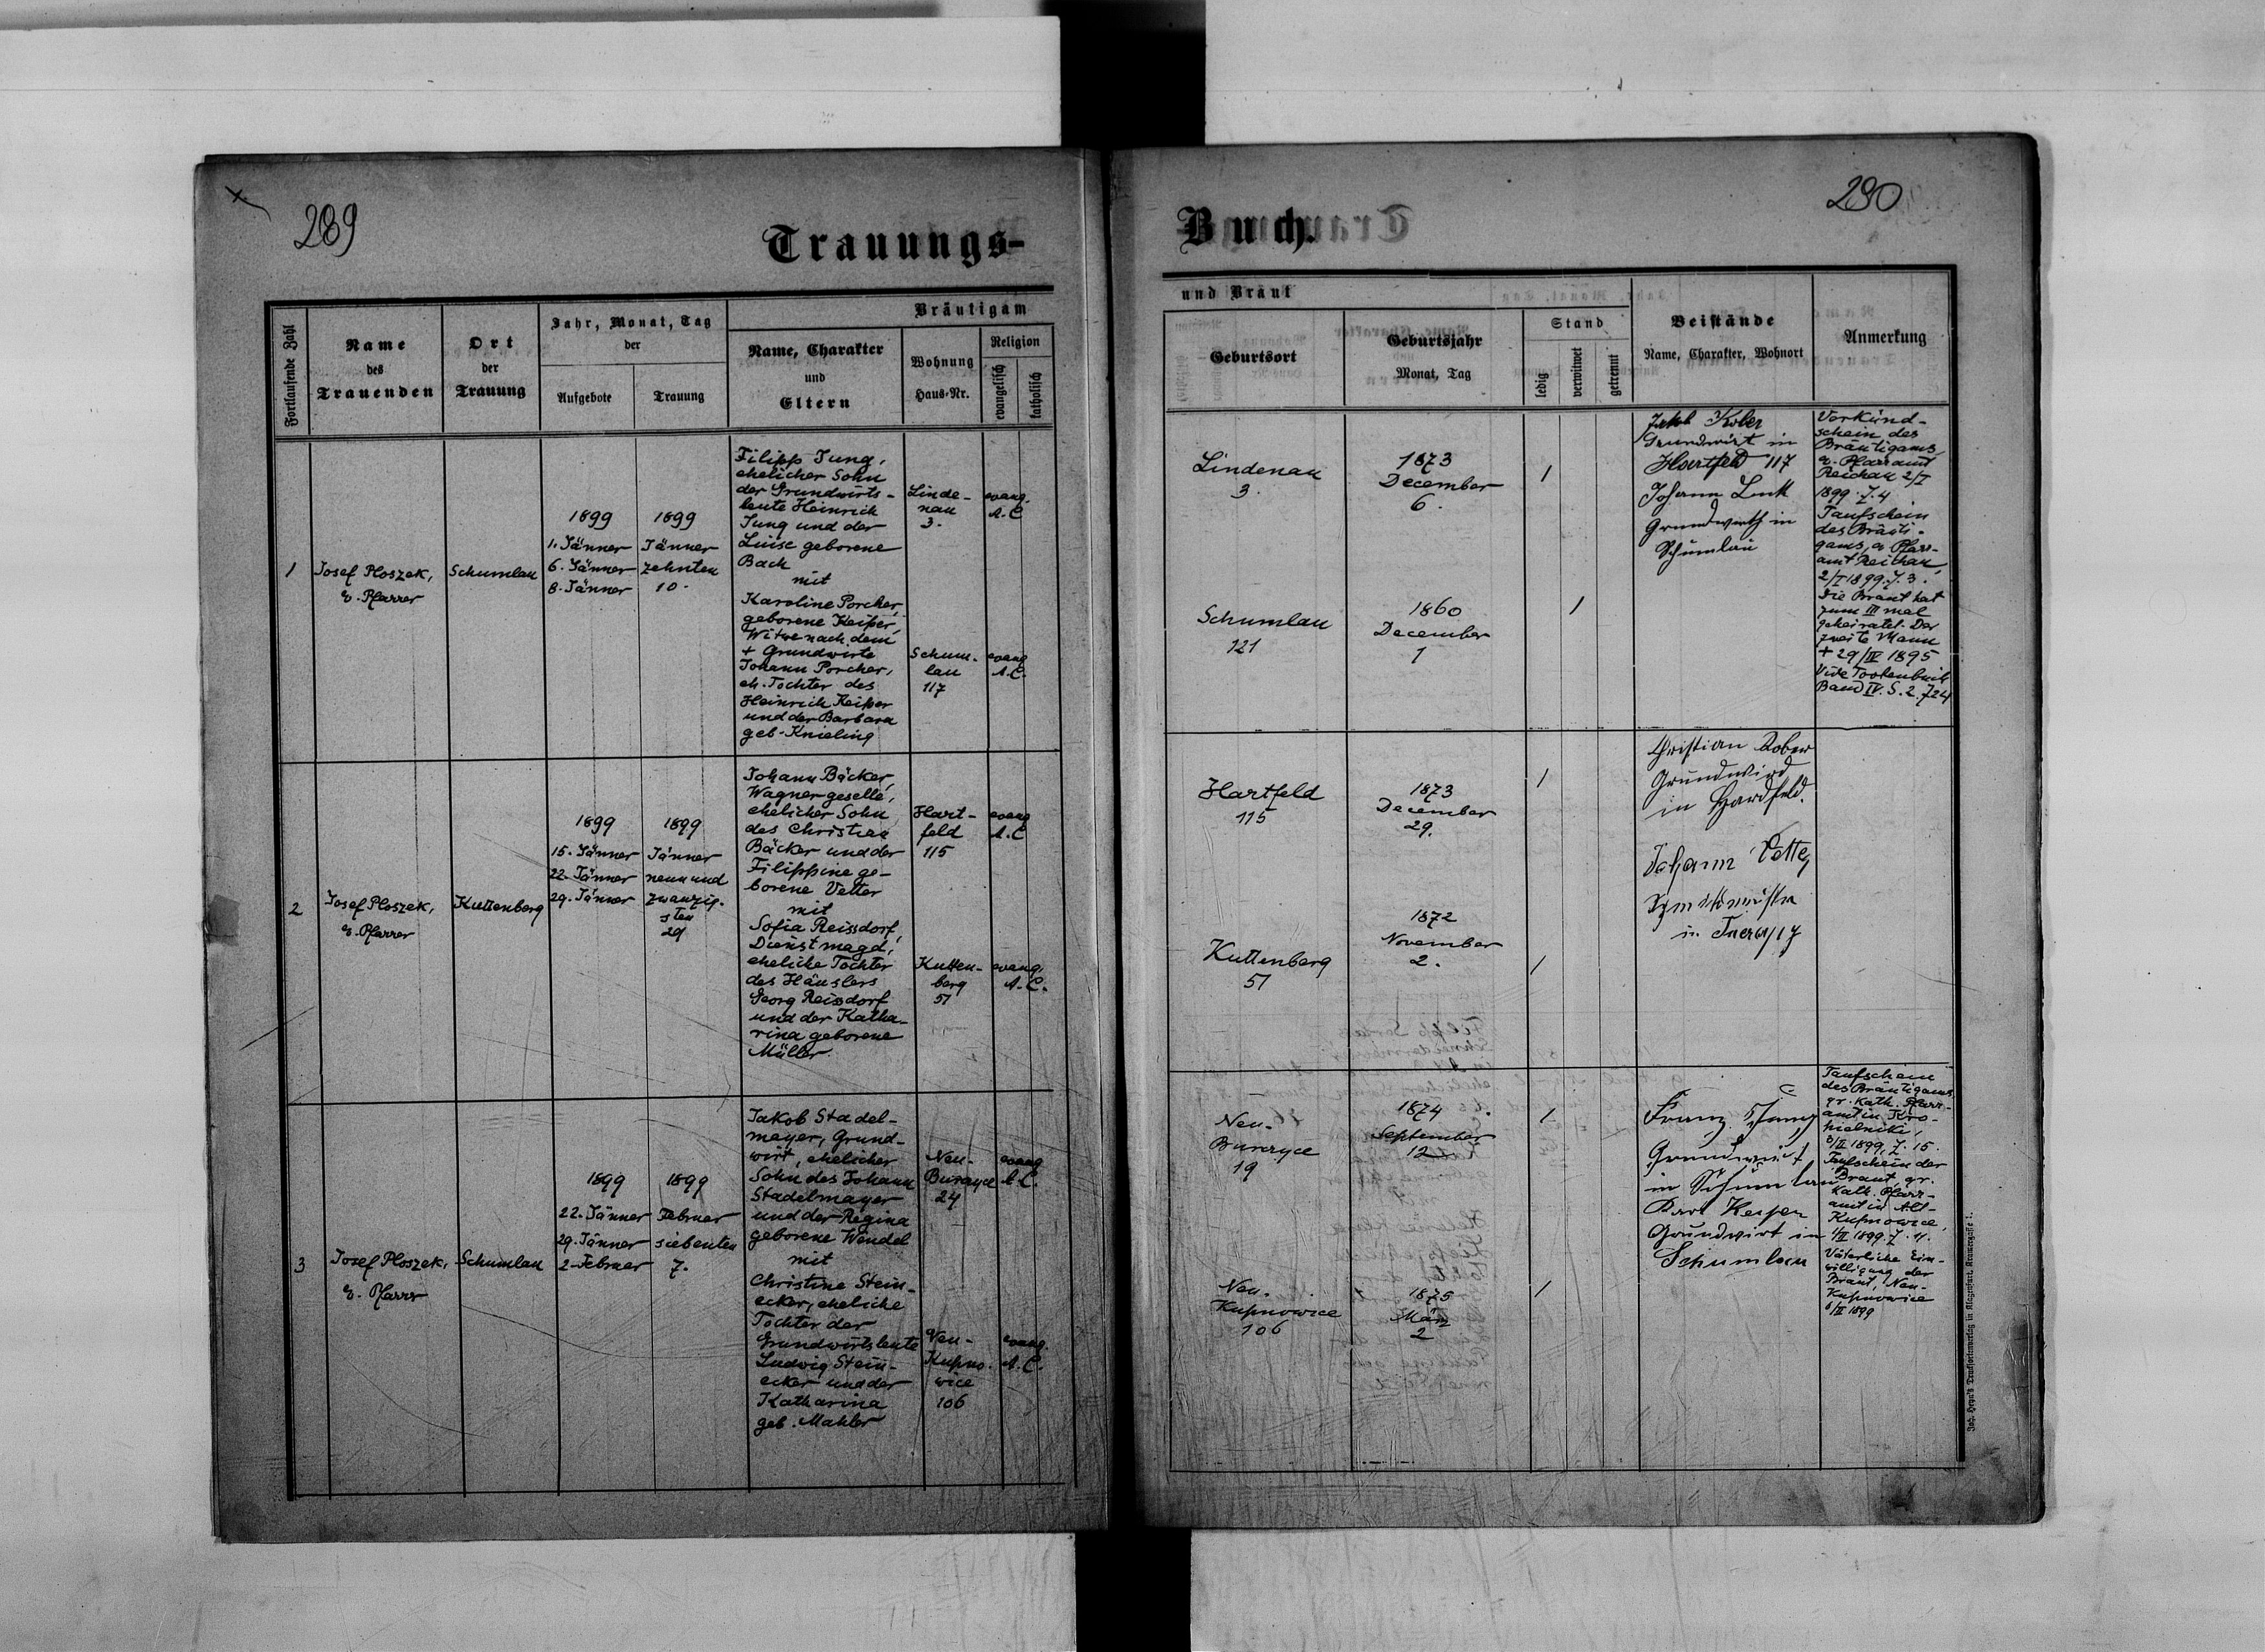 289
Trauungs-
Fortlaufende Zahl
Name
des
Trauenden
Ort
der
Trauung
Jahr, Monat, Tag
der
Aufgebote
Trauung
Bräutigam
Name, Charakter
und
Eltern
Wohnung
Haus-Nr.
Religion
evangelisch
katholisch
1
Josef Ploszek,
e. Pfarrer
Schumlau
1899
1. Jänner
6. Jänner
8. Jänner
1899
Jänner
zehnten
10.
Filipp Jung,
ehelicher Sohn
der Grundwirts-
leute Heinrich
Jung und der
Luise geborene
Bach
mit
Karoline Porcher,
geborene Keiper,
Witwe nach dem
+ Grundwirte
Johann Porcher,
eh. Tochter des
Heinrich Keiper
und der Barbara
geb. Knieling
Linde-
nau
3.
evang.
A.C.
Schum-
lau
117
evang.
A.C.
2
Josef Ploszek,
e. Pfarrer
Kuttenberg
1899
15. Jänner
22. Jänner
29. Jänner
1899
Jänner
neunund
zwanzig-
sten
29
Johann Bäcker,
Wagnergeselle,
ehelicher Sohn
des Christian
Bäcker und der
Filippine ge-
borene Vetter
mit
Sofia Reissdorf,
Dienstmagd,
eheliche Tochter
des Häuslers
Georg Reissdorf
und der Katha-
rina geborene
Müller.
Hart-
feld
115
evang.
A.C.
Kutten-
berg
51
evang.
A.C.
3
Josef Ploszek,
e. Pfarrer
Schumlau
1899
22. Jänner
29. Jänner
2. Februar
1899
Februar
siebenten
7.
Jakob Stadel-
mayer, Grund-
wirt, ehelicher
Sohn des Johann
Stadelmayer
und der Regina
geborene Wendel
mit
Christine Stein-
ecker, eheliche
Tochter der
Grundwirtsleute
Ludwig Stein-
ecker und der
Katharina
geb. Mahler
Neu-
Burczyce
24
evang.
A.C.
Neu-
Kupno-
wice
106
evang.
A.C.
290
Buch.
und Braut
Geburtsort
Geburtsjahr
Monat, Tag
Stand
ledig
verwitwet
getrennt
Beistände
Name, Charakter, Wohnort
Anmerkung
Lindenau
3.
1873
December
6.
/
Schumlau
121
1860
December
1
/
Jakob Kober
Grundwirt in
Hartfeld 117
Johann
Grundwirth in
Schumlau
Verkünd-
schein des
Bräutigams,
e. Pfarramt
Reichau 2/I
1899. Z. 4.
Taufschein
des Bräuti-
gams, e. Pfarr-
amt Reichau,
2/I 1899. Z. 3.
Die Braut hat
zum III mal
geheiratet. Der
zweite Mann
+ 29/IV 1895
Vide Totenbuch
Band IV. S. 2. Z 24
Hartfeld
115
1873
December
29.
/
Kuttenberg
51
1872
November
2.
/
Christian Kober
Grundwird
in Hardfeld.
Johann Vetter
in
Neu-
Burczyce
19
1874
September
12
/
Neu-
Kupnowice
106
1875
März
2
/
Franz Jung
Grundwirt
in Schumlau
Karl Keiper
Grundwirt in
Schumlau
Taufschein
des Bräutigams,
gr. kath. Pfarr-
amt in Kro-
pielniki,
3/II 1899, Z. 15.
Taufschein der
Braut, gr.
kath. Pfarr-
amt in Alt-
Kupnowice,
1/II 1899. Z. 11.
Väterliche Ein-
willigung der
Braut, Neu-
Kupnowice
6/II 1899
Joh. Heyn's Drucksortenverlag in Klagenfurt, Kramergasse 1.